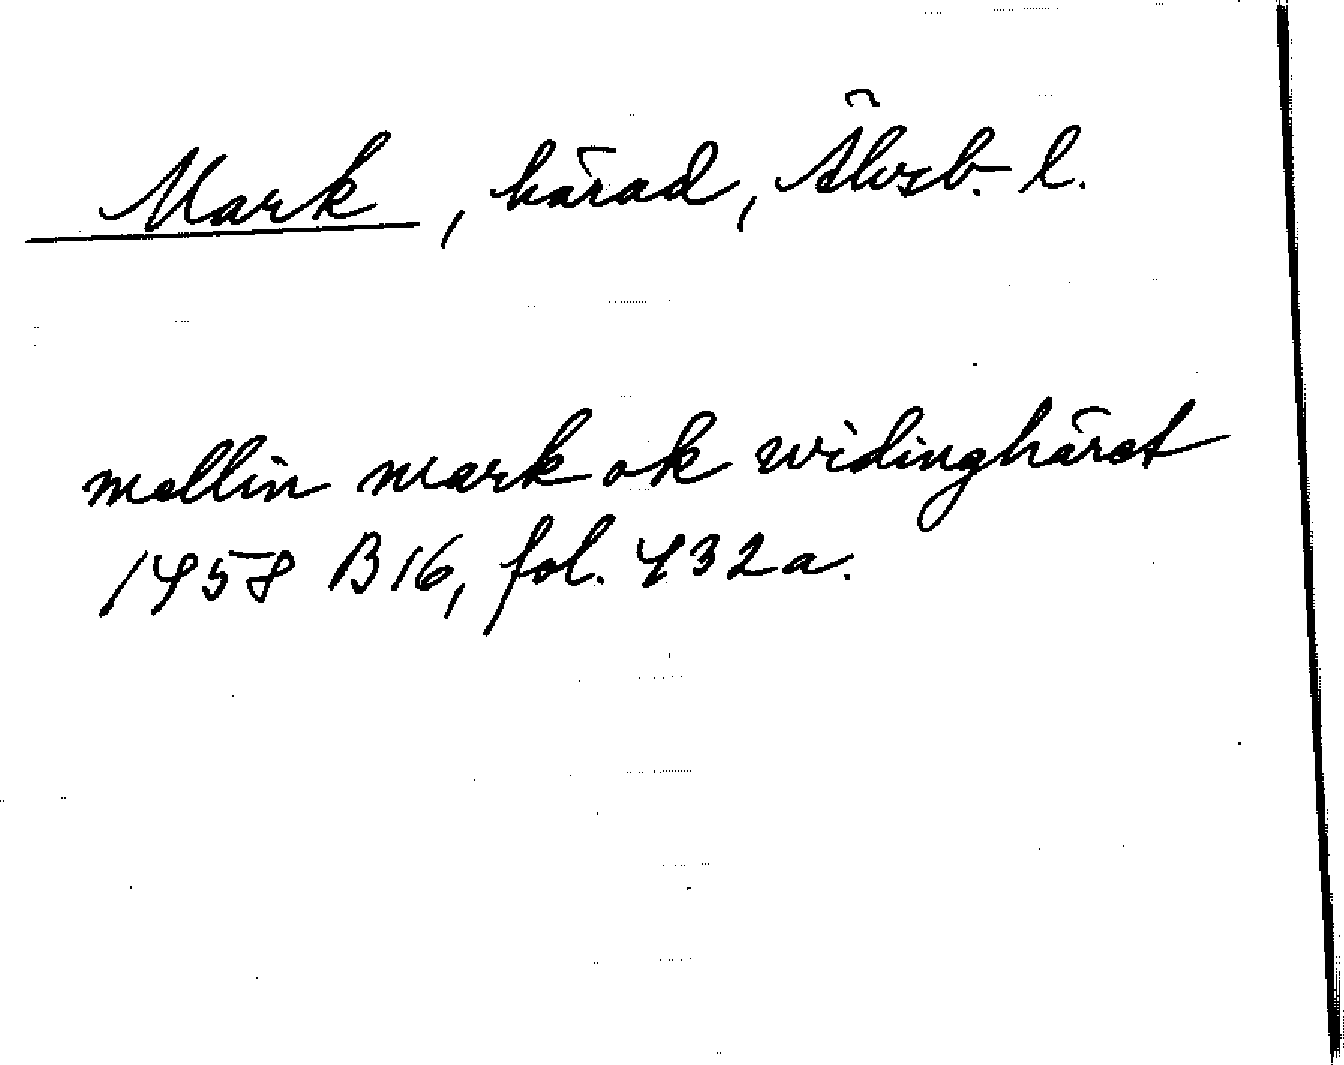 Mark, härad, Älvsb. l.
mellin mark ok widinghäret
1458 B16, fol. 432a.